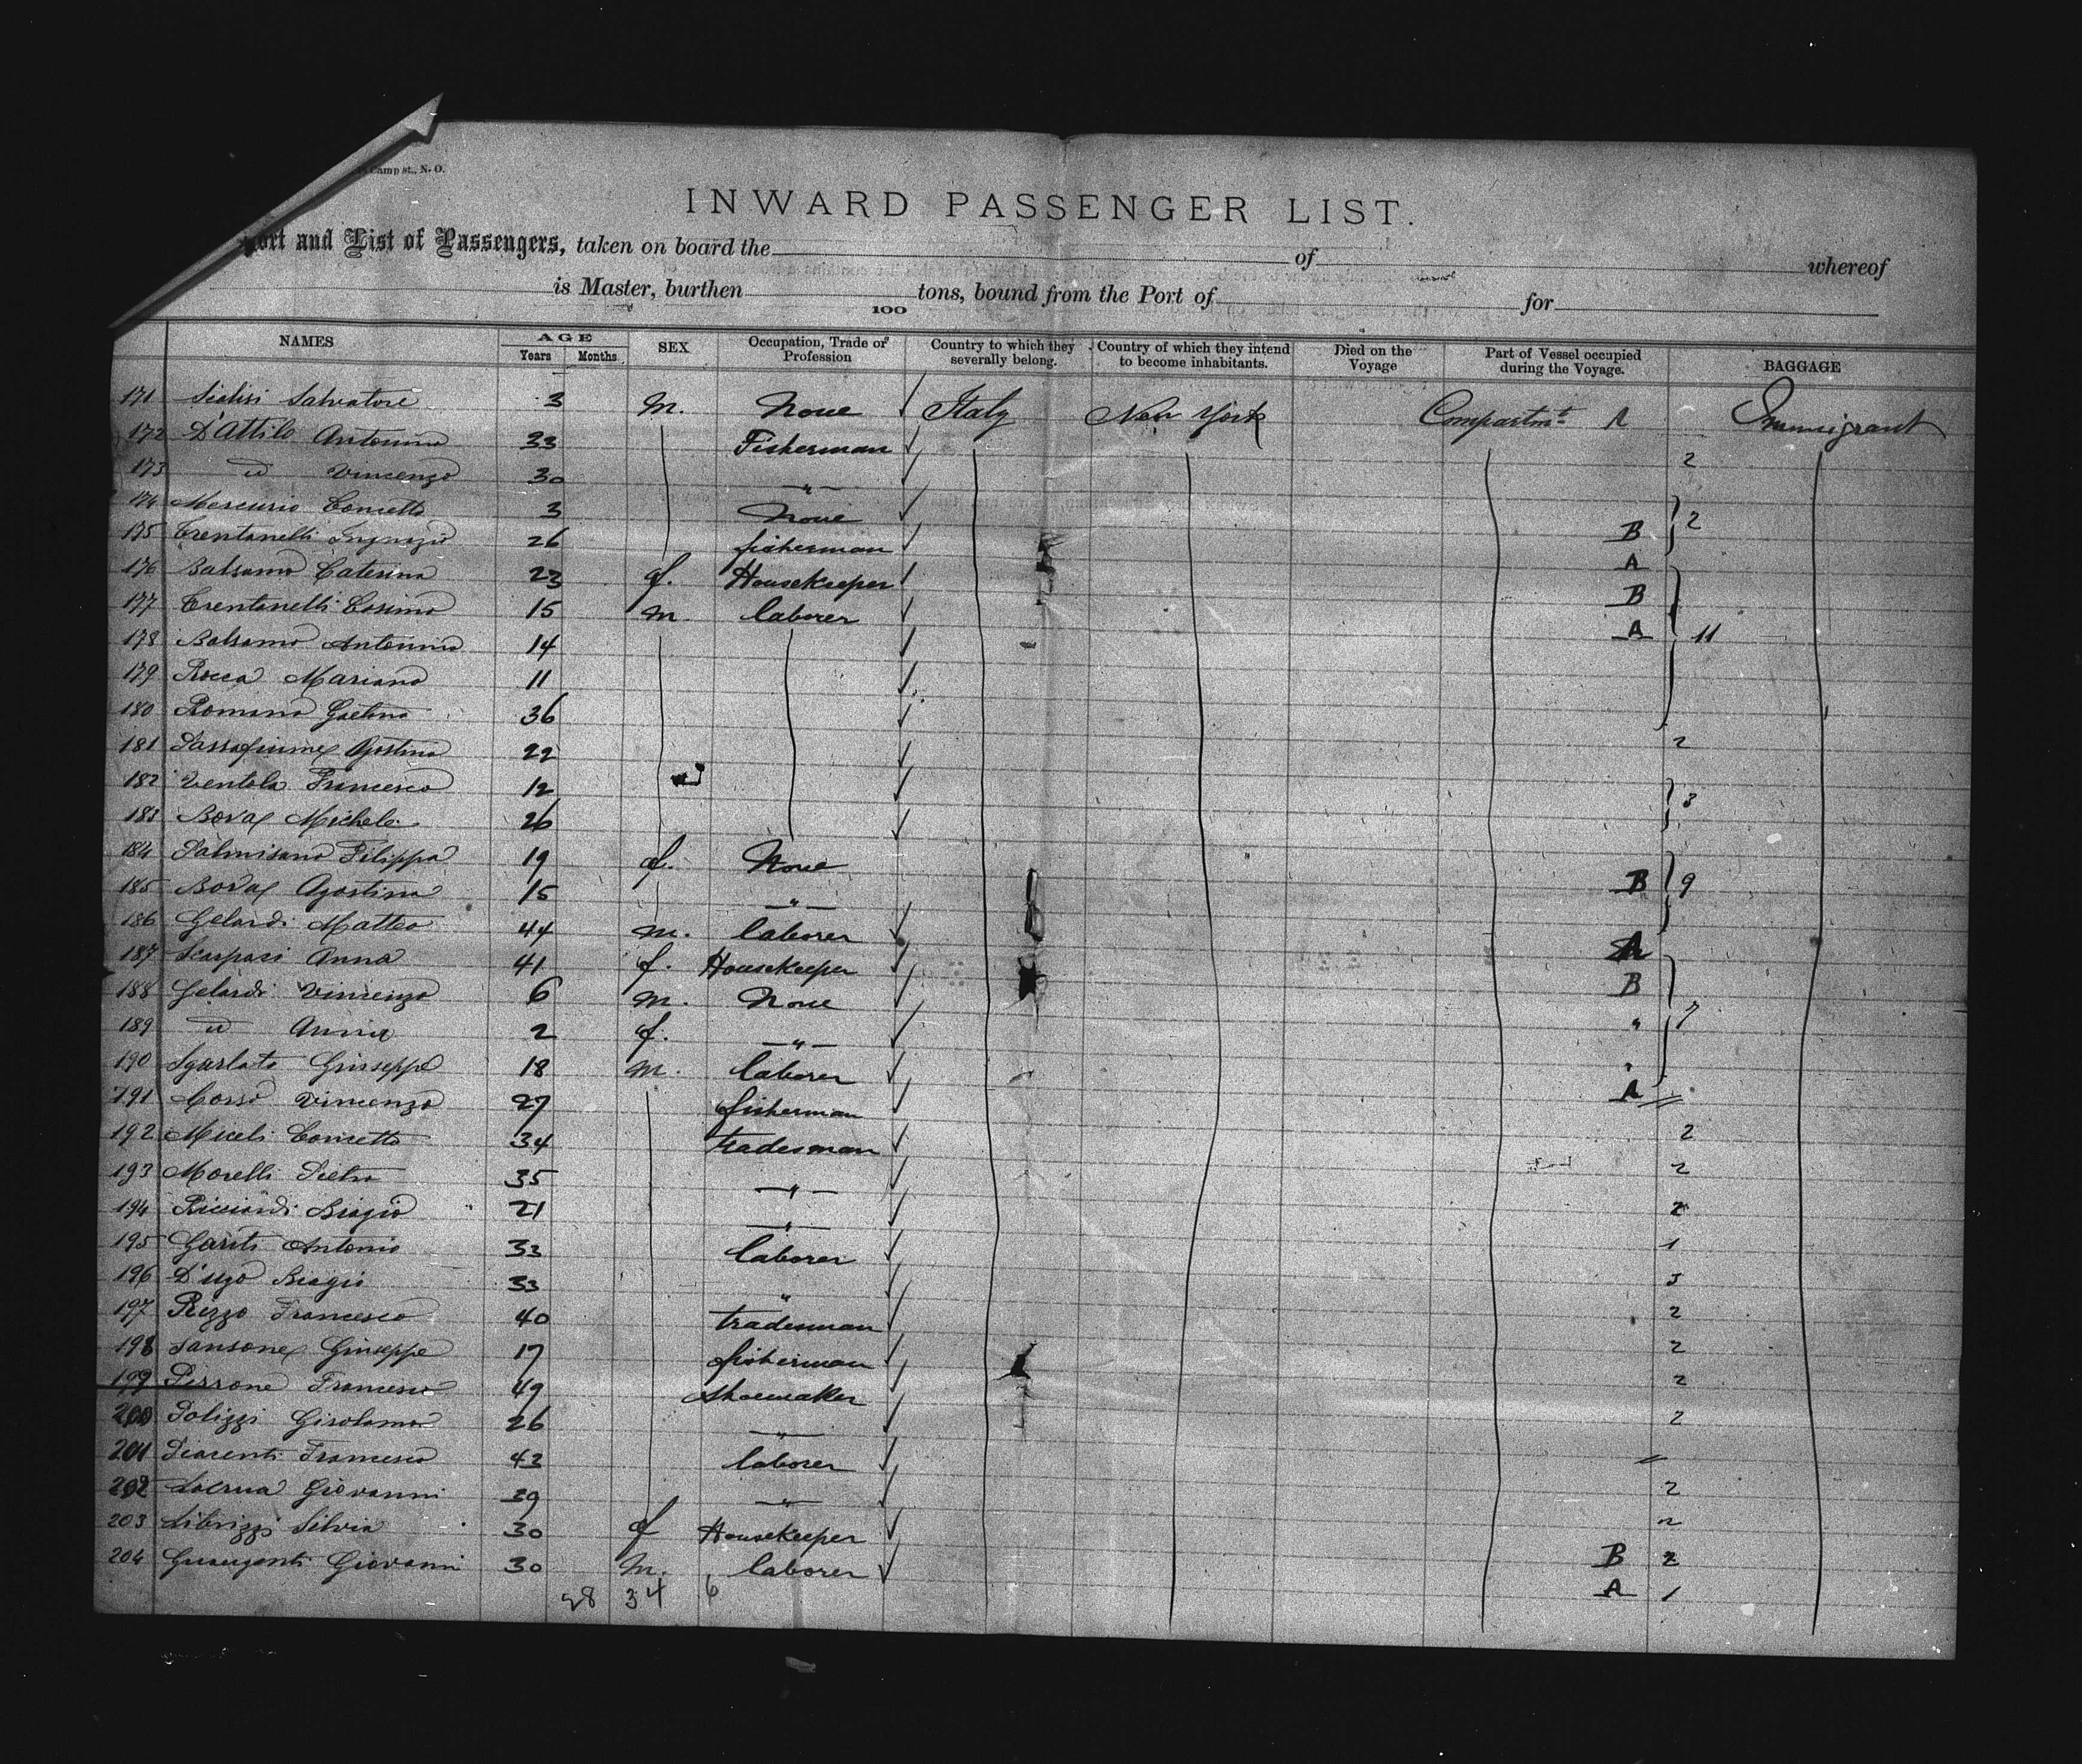 Camp st., N. O.
INWARD PASSENGER LIST.
ort and List of Passengers, taken on board the of whereof
is Master, burthen tons, bound from the Port of for
100
NAMES AGE Years Months SEX Occupation, Trade or Profession Country to which they severally belong. Country of which they intend to become inhabitants. Died on the Voyage Part of Vessel occupied during the Voyage. BAGGAGE
171 Salvatore 3 m. None Italy New York Compartmt A Immigrant
172 D'Attilo Antonino 33 Fisherman 2
173 id Vincenzo 30 "
174 Mercurio Concetto 3 None 2
175 Trentanelli Ignazio 26 fisherman B
176 Balsamo Caterina 23 f. Housekeeper A
177 Trentanelli Cosimo 15 m laborer B
178 Balsamo Antonino 14 A 11
179 Rocca Mariano 11
180 Romano Gaetano 36
181 Sassofiume Agostino 22 2
182 Ventola Francesco 12 3
183 Bova Michele 26
184 Palmisano Filippa 19 f. None
185 Bova Agostina 15 " B 9
186 Gelardi Matteo 44 m. laborer
187 Scarpaci Anna 41 f. Housekeeper A
188 Gelardi Vincenzo 6 m. None B
189 id Anna 2 f. " " 7
190 Sgarlato Giuseppe 18 m. laborer "
191 Corso Vincenzo 27 fisherman A
192 Miceli Concetto 34 tradesman 2
193 Morelli Pietro 35 " 2
194 Ricciardi Biagio 21 " 2
195 Gariti Antonio 33 laborer 1
196 D'Ugo Biagio 33 " 3
197 Rizzo Francesco 40 tradesman 2
198 Sansone Giuseppe 17 fisherman 2
199 Pirrone Francesco 49 shoemaker 2
200 Polizzi Girolamo 26 " 2
201 Francesco 43 laborer "
202 Giovanni 39 " 2
203 Librizzi Silvia 30 f Housekeeper 2
204 Giovanni 30 m. laborer B 2
28 34 6 A 1